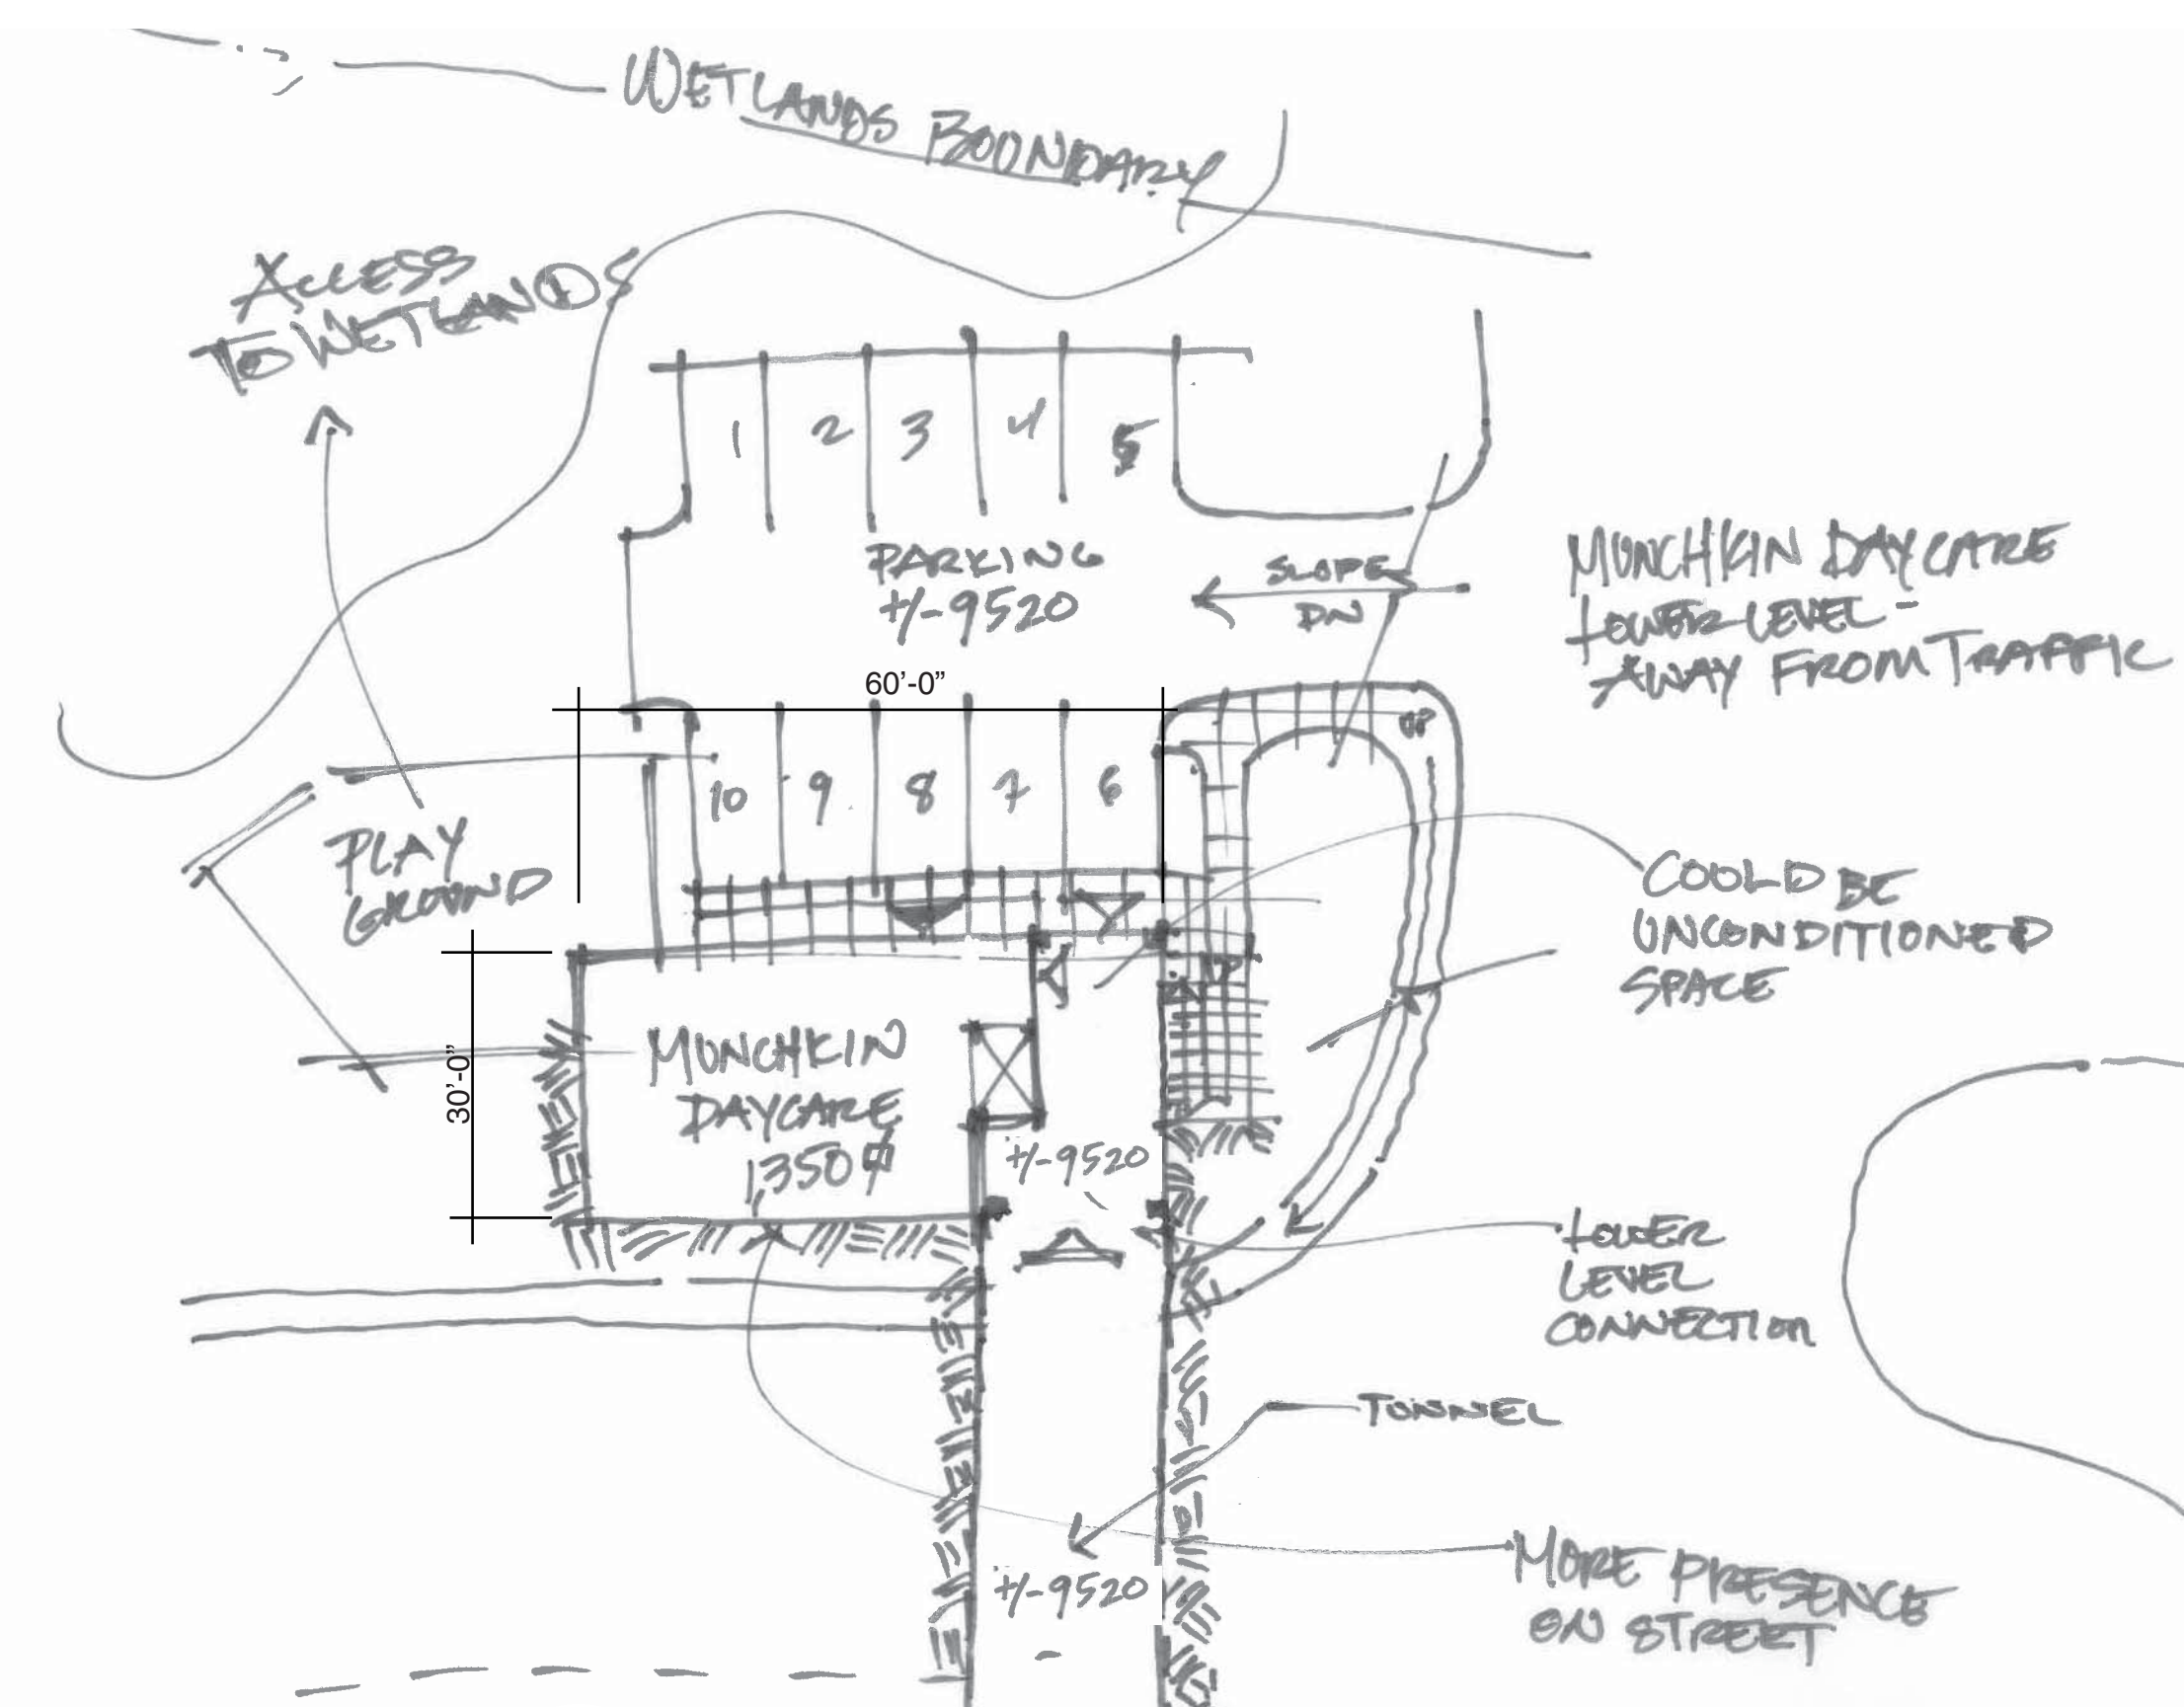 WETLANDS BOUNDARY
ACCESS
TO WETLANDS
1 2 3 4 5
PARKING
+/-9520
SLOPE
DN
MUNCHKIN DAYCARE
LOWER LEVEL -
AWAY FROM TRAFFIC
60'-0"
UP
10 9 8 7 6
PLAY
GROUND
COULD BE
UNCONDITIONED
SPACE
UP
30'-0"
MUNCHKIN
DAYCARE
1,350 ⏍
+/-9520
LOWER
LEVEL
CONNECTION
TUNNEL
+/-9520
MORE PRESENCE
ON STREET